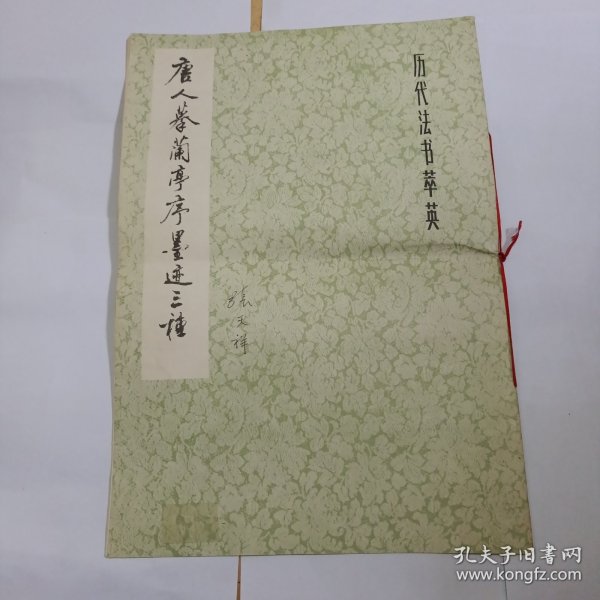 历代法书萃英
唐人摹蘭亭序墨迹三種
張天祥
孔夫子旧书网
www.kongfz.com